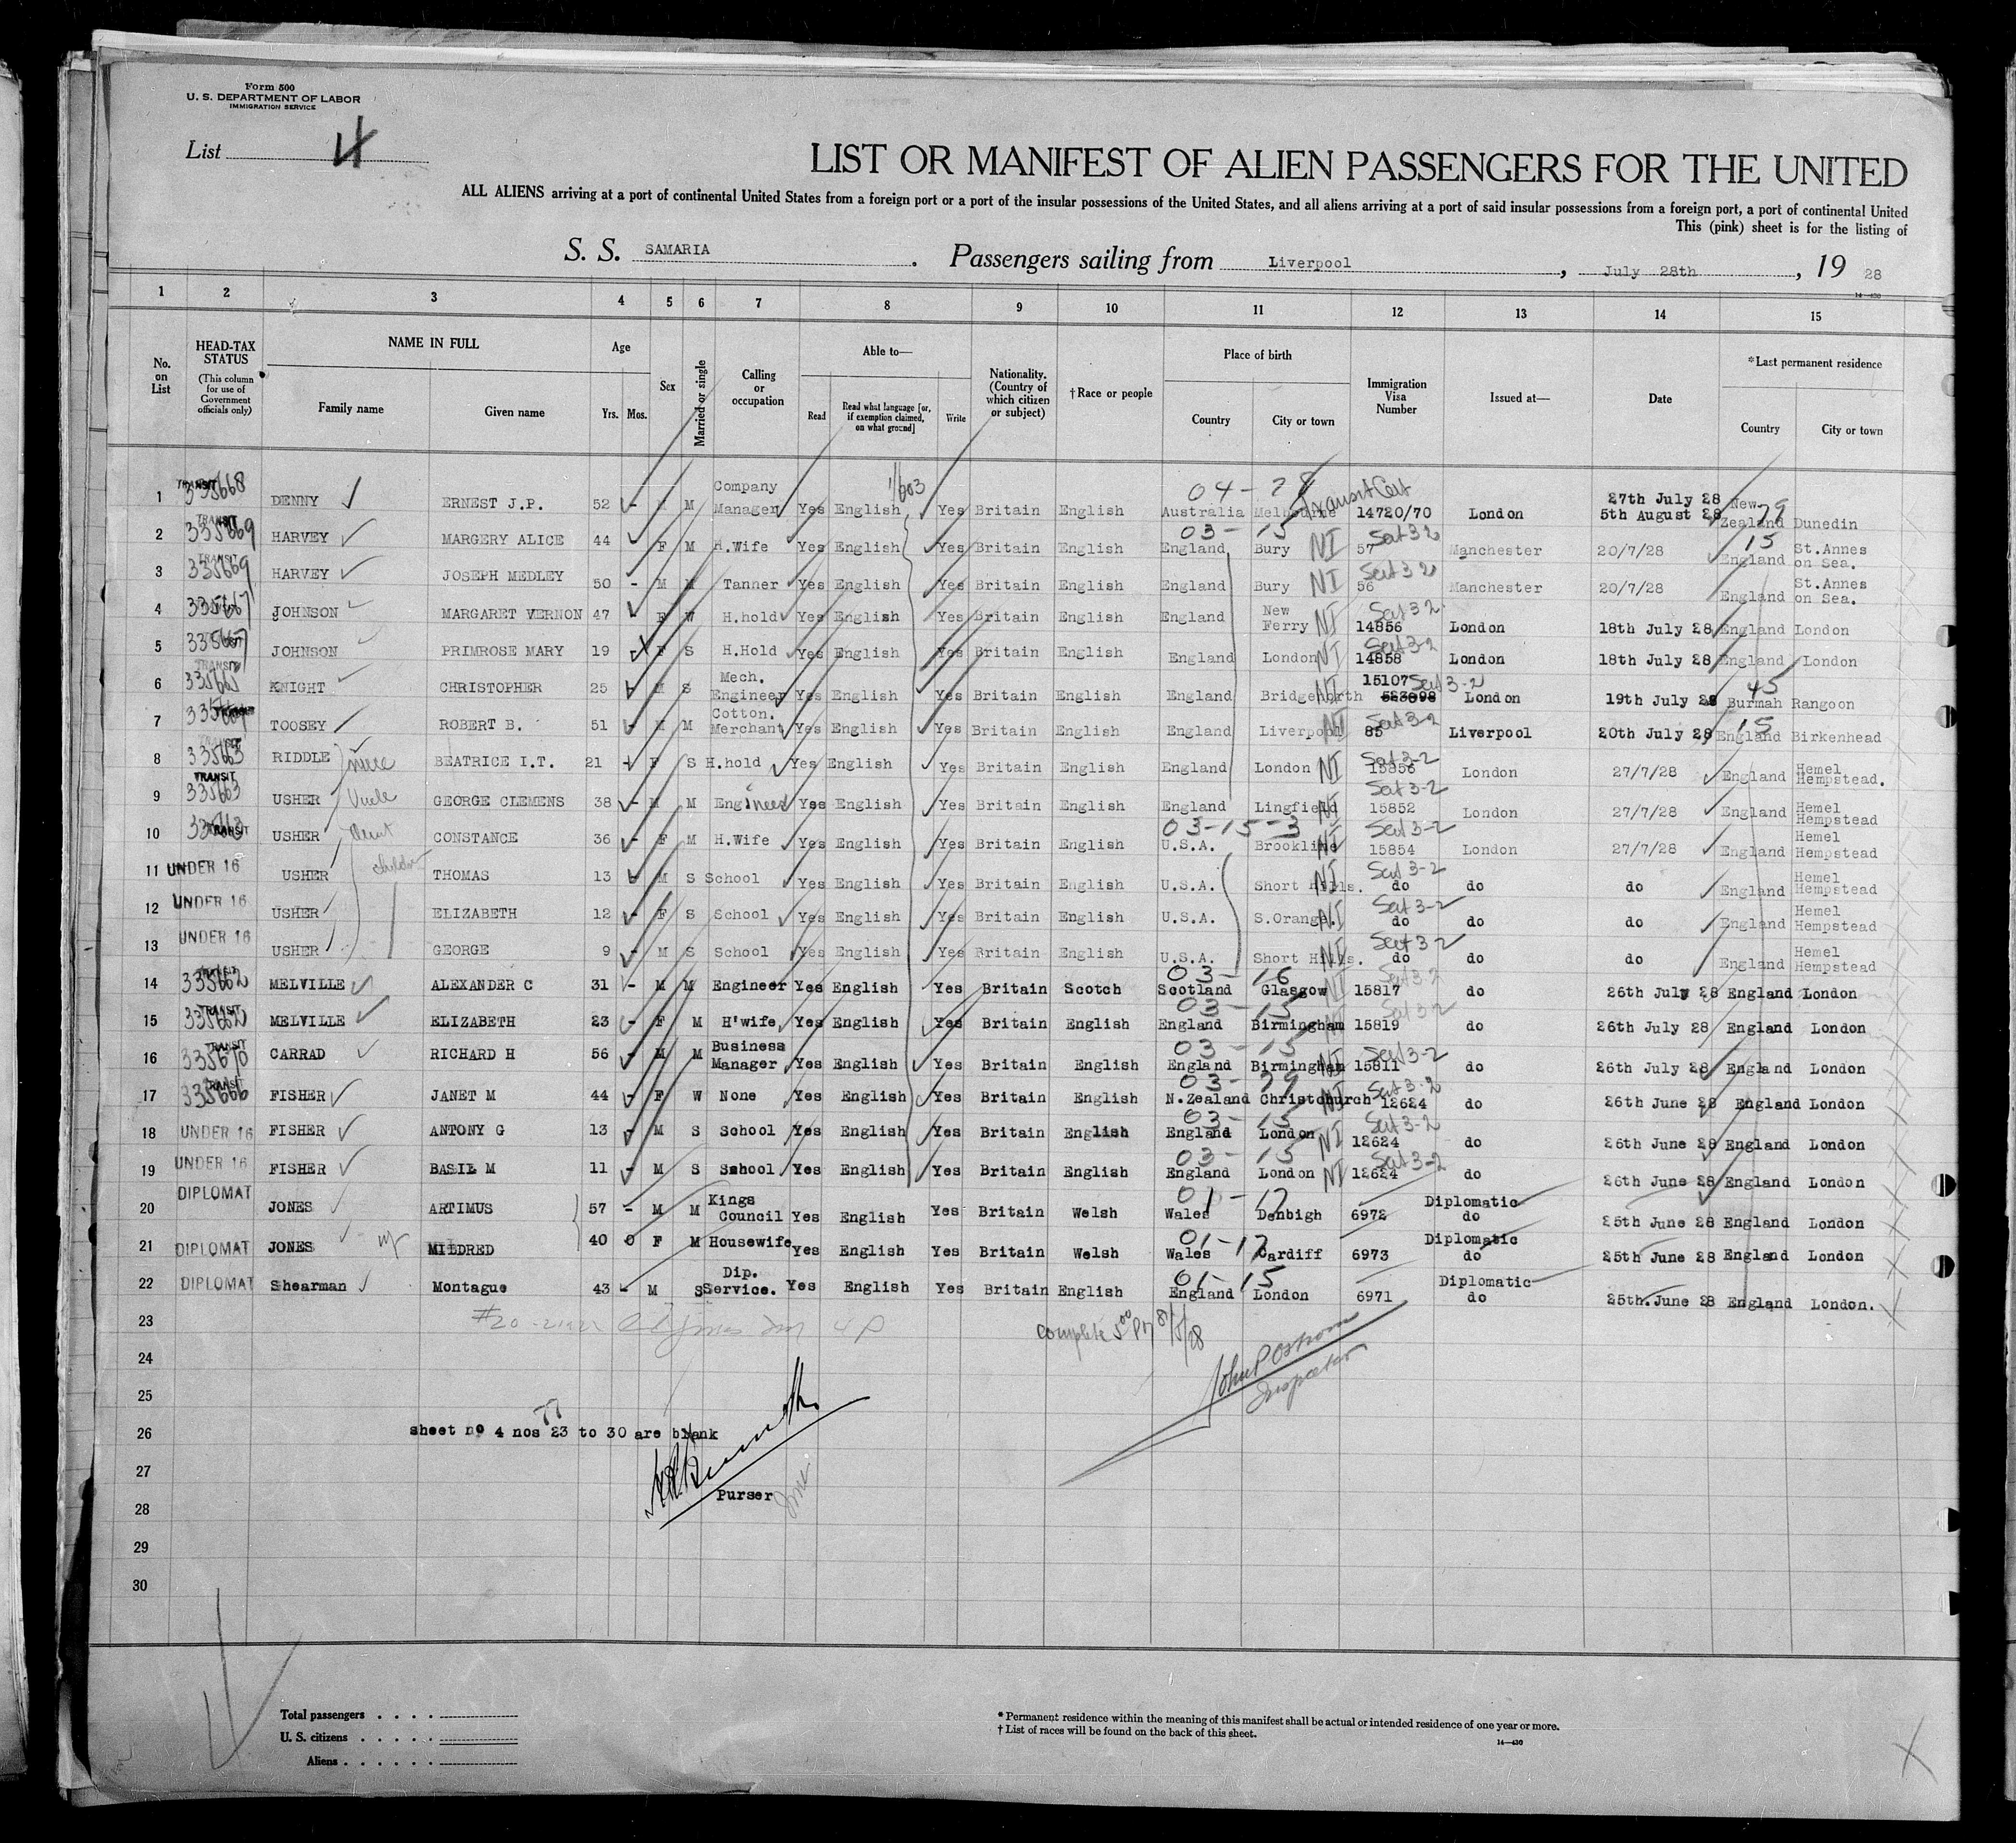 Form 500
U. S. DEPARTMENT OF LABOR
IMMIGRATION SERVICE
List 4
LIST OR MANIFEST OF ALIEN PASSENGERS FOR THE UNITED
ALL ALIENS arriving at a port of continental United States from a foreign port or a port of the insular possessions of the United States, and all aliens arriving at a port of said insular possessions from a foreign port, a port of continental United
This (pink) sheet is for the listing of
S. S. SAMARIA . Passengers sailing from Liverpool , July 28th , 19 28
14—430
1 2 3 4 5 6 7 8 9 10 11 12 13 14 15
No. on List
HEAD-TAX STATUS (This column for use of Government officials only)
NAME IN FULL Family name Given name
Age Yrs. Mos.
Sex
Married or single
Calling or occupation
Able to— Read Read what language [or, if exemption claimed, on what ground] Write
Nationality. (Country of which citizen or subject)
†Race or people
Place of birth Country City or town
Immigration Visa Number
Issued at—
Date
*Last permanent residence Country City or town
1 TRANSIT 335668 DENNY ERNEST J.P. 52 - M M Company Manager Yes English Yes Britain English 04-28 Australia Melbourne Transit Cert 14720/70 London 27th July 28 5th August 28 New Zealand 79 Dunedin
2 TRANSIT 335669 HARVEY MARGERY ALICE 44 F M H.Wife Yes English Yes Britain English 03-15 England Bury NI Sect 3-2 57 Manchester 20/7/28 15 England St.Annes on Sea.
3 TRANSIT 335669 HARVEY JOSEPH MEDLEY 50 - M M Tanner Yes English Yes Britain English England Bury NI Sect 3-2 56 Manchester 20/7/28 England St.Annes on Sea.
4 335667 JOHNSON MARGARET VERNON 47 - F W H.hold Yes English Yes Britain English England New Ferry NI Sect 3-2 14856 London 18th July 28 England London
5 335667 JOHNSON PRIMROSE MARY 19 F S H.Hold Yes English Yes Britain English England London NI Sect 3-2 14858 London 18th July 28 England London
6 TRANSIT 335665 KNIGHT CHRISTOPHER 25 - M S Mech. Engineer Yes English Yes Britain English England Bridgenorth NI 15107 Sect 3-2 London 19th July 28 45 Burmah Rangoon
7 TOOSEY ROBERT B. 51 - M M Cotton. Merchant Yes English Yes Britain English England Liverpool NI Sect 3-2 85 Liverpool 20th July 28 15 England Birkenhead
8 TRANSIT 335663 RIDDLE niece BEATRICE I.T. 21 - F S H.hold Yes English Yes Britain English England London NI Sect 3-2 15856 London 27/7/28 England Hemel Hempstead.
9 TRANSIT 335663 USHER Uncle GEORGE CLEMENS 38 - M M Engineer Yes English Yes Britain English England Lingfield NI Sect 3-2 15852 London 27/7/28 England Hemel Hempstead
10 TRANSIT 335663 USHER Aunt CONSTANCE 36 - F M H.Wife Yes English Yes Britain English 03-15-3 U.S.A. Brookline NI Sect 3-2 15854 London 27/7/28 England Hemel Hempstead
11 UNDER 16 USHER children THOMAS 13 - M S School Yes English Yes Britain English U.S.A. Short Hills. NI Sect 3-2 do do do England Hemel Hempstead
12 UNDER 16 USHER ELIZABETH 12 - F S School Yes English Yes Britain English U.S.A. S.Orange. NI Sect 3-2 do do do England Hemel Hempstead
13 UNDER 16 USHER GEORGE 9 - M S School Yes English Yes Britain English U.S.A. Short Hills. NI Sect 3-2 do do do England Hemel Hempstead
14 TRANSIT 335662 MELVILLE ALEXANDER C 31 - M M Engineer Yes English Yes Britain Scotch 03-16 Scotland Glasgow NI Sect 3-2 15817 do 26th July 28 England London
15 TRANSIT 335662 MELVILLE ELIZABETH 23 - F M H'wife Yes English Yes Britain English 03-15 England Birmingham NI Sect 3-2 15819 do 26th July 28 England London
16 TRANSIT 335670 CARRAD RICHARD H 56 - M M Business Manager Yes English Yes Britain English 03-15 England Birmingham NI Sect 3-2 15811 do 26th July 28 England London
17 TRANSIT 335666 FISHER JANET M 44 - F W None Yes English Yes Britain English 03-29 N.Zealand Christchurch NI Sect 3-2 12624 do 26th June 28 England London
18 UNDER 16 FISHER ANTONY G 13 - M S School Yes English Yes Britain English 03-15 England London NI Sect 3-2 12624 do 26th June 28 England London
19 UNDER 16 FISHER BASIL M 11 - M S School Yes English Yes Britain English 03-15 England London NI Sect 3-2 12624 do 26th June 28 England London
20 DIPLOMAT JONES ARTIMUS 57 - M M Kings Council Yes English Yes Britain Welsh 01-17 Wales Denbigh 6972 Diplomatic do 25th June 28 England London
21 DIPLOMAT JONES MILDRED 40 0 F M Housewife Yes English Yes Britain Welsh 01-17 Wales Cardiff 6973 Diplomatic do 25th June 28 England London
22 DIPLOMAT Shearman Montague 43 - M S Dip. Service. Yes English Yes Britain English 01-15 England London 6971 Diplomatic do 25th.June 28 England London.
23 Complete
24 John P Osborne
25 Inspector
26 sheet no 4 nos 23 to 30 are blank
27
28 Purser
29
30
Total passengers . . . .
U. S. citizens . . . . .
Aliens . . . . . .
* Permanent residence within the meaning of this manifest shall be actual or intended residence of one year or more.
† List of races will be found on the back of this sheet.
14—430